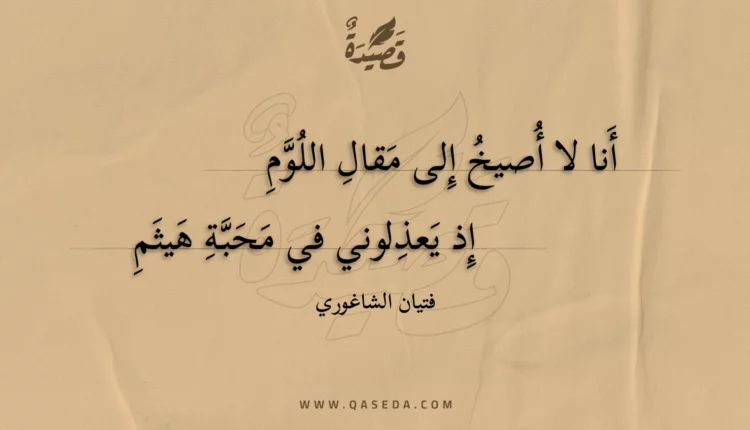 قَصِيْدَةٌ
أَنا لا أُصيخُ إِلى مَقالِ اللُوَّمِ
إِذ يَعذِلوني في مَحَبَّةِ هَيثَمِ
فتيان الشاغوري
WWW.QASEDA.COM